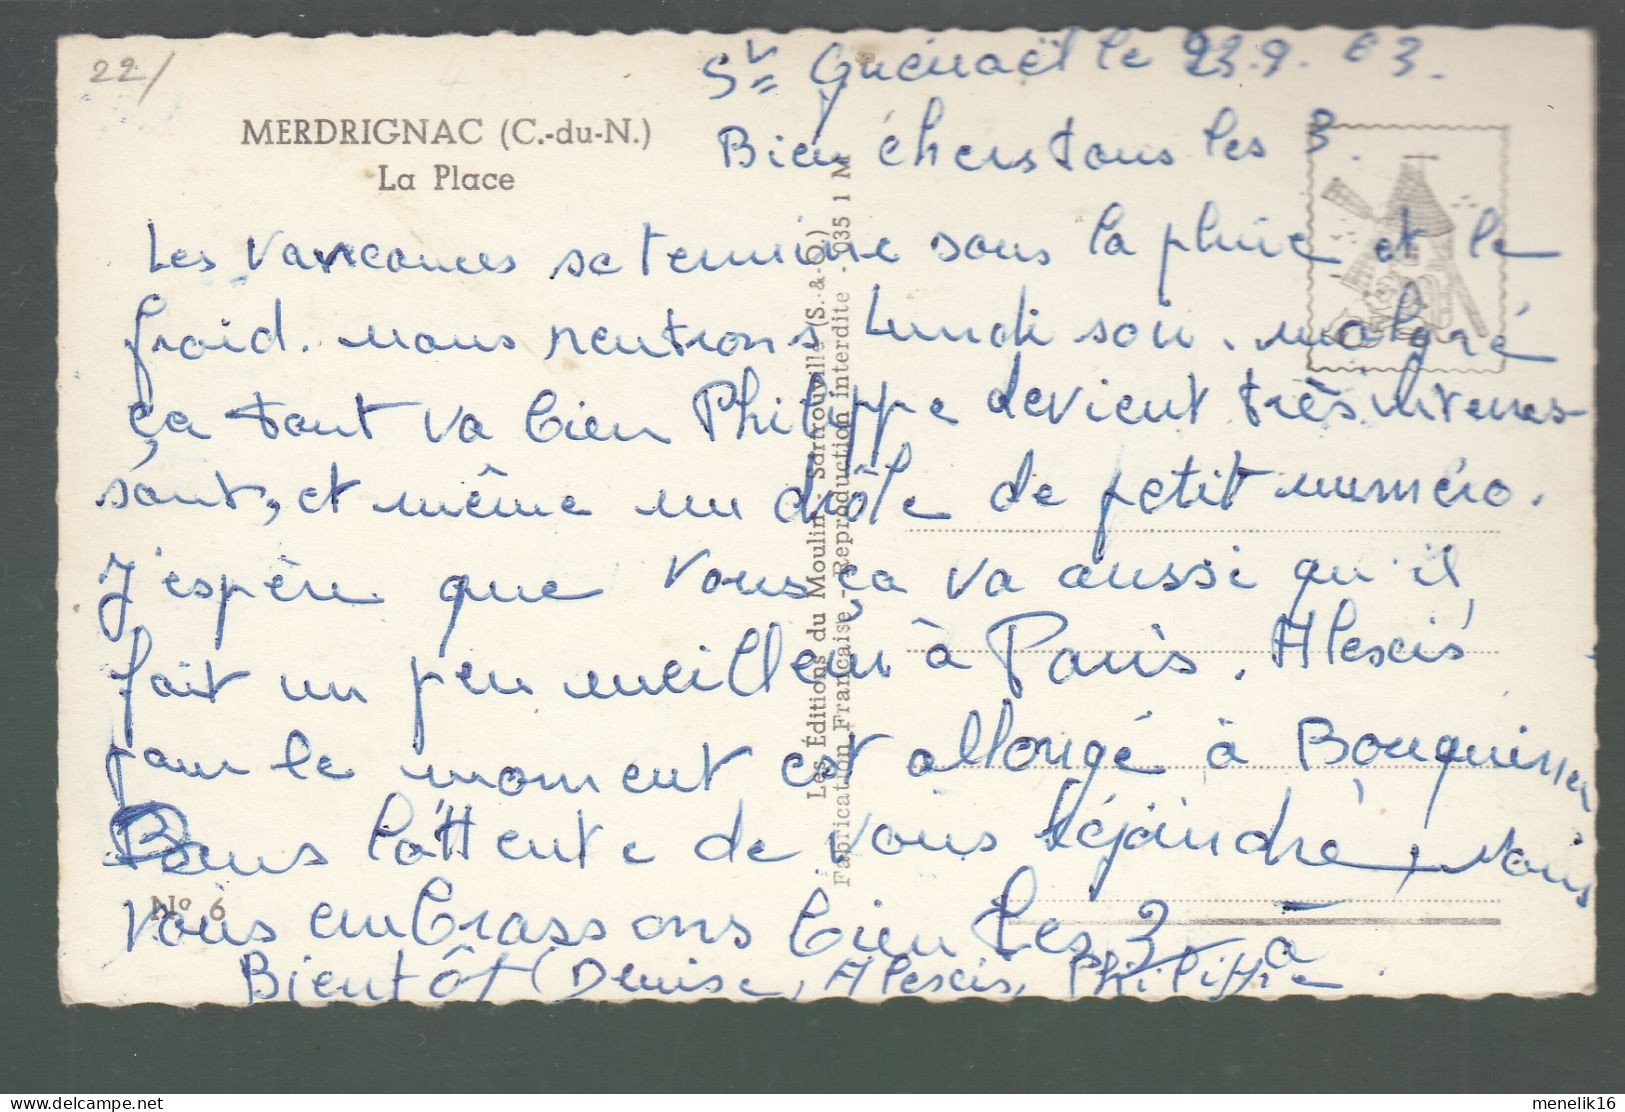 22/
St Guénaël le 23.9.63.
MERDRIGNAC (C.-du-N.)
La Place
Bien chers tous les 3.
Les vancances se termine sous la pluie et le
froid. nous rentrons Lundi soir. malgré
ça tout va bien Philippe devient très interes-
sant, et même un drôle de petit numéro.
J'espère que vous ça va aussi qu'il
fait un peu meilleur à Paris. Alexis
pour le moment est allongé à Bouquiner
Dans l'attente de vous rejoindre, nous
vous embrassons bien tes 3 à
Bientôt (Denise, Alexis, Philippe.
Nº 6
Les Éditions du Moulin - Sartrouville (S.-&-O.)
Fabrication Française - Reproduction interdite - 035 1 M
menelik16